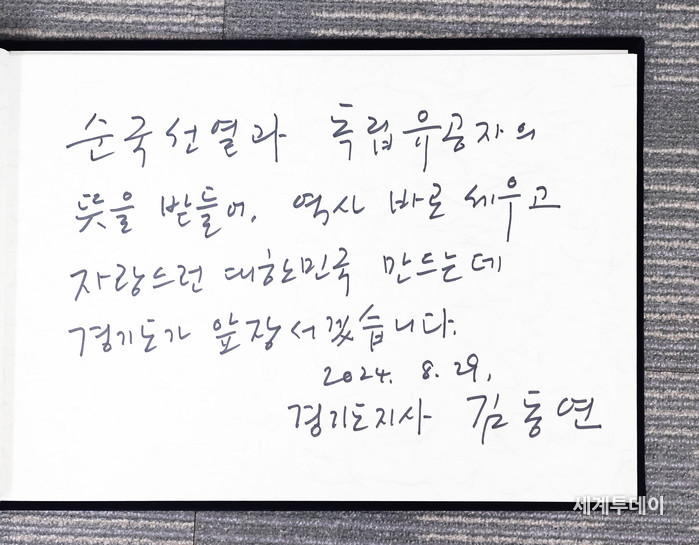 순국선열과 독립유공자의
뜻을 받들어, 역사 바로 세우고
자랑스런 대한민국 만드는데
경기도가 앞장서겠습니다.
2024. 8. 29,
경기도지사 김동연
세계투데이